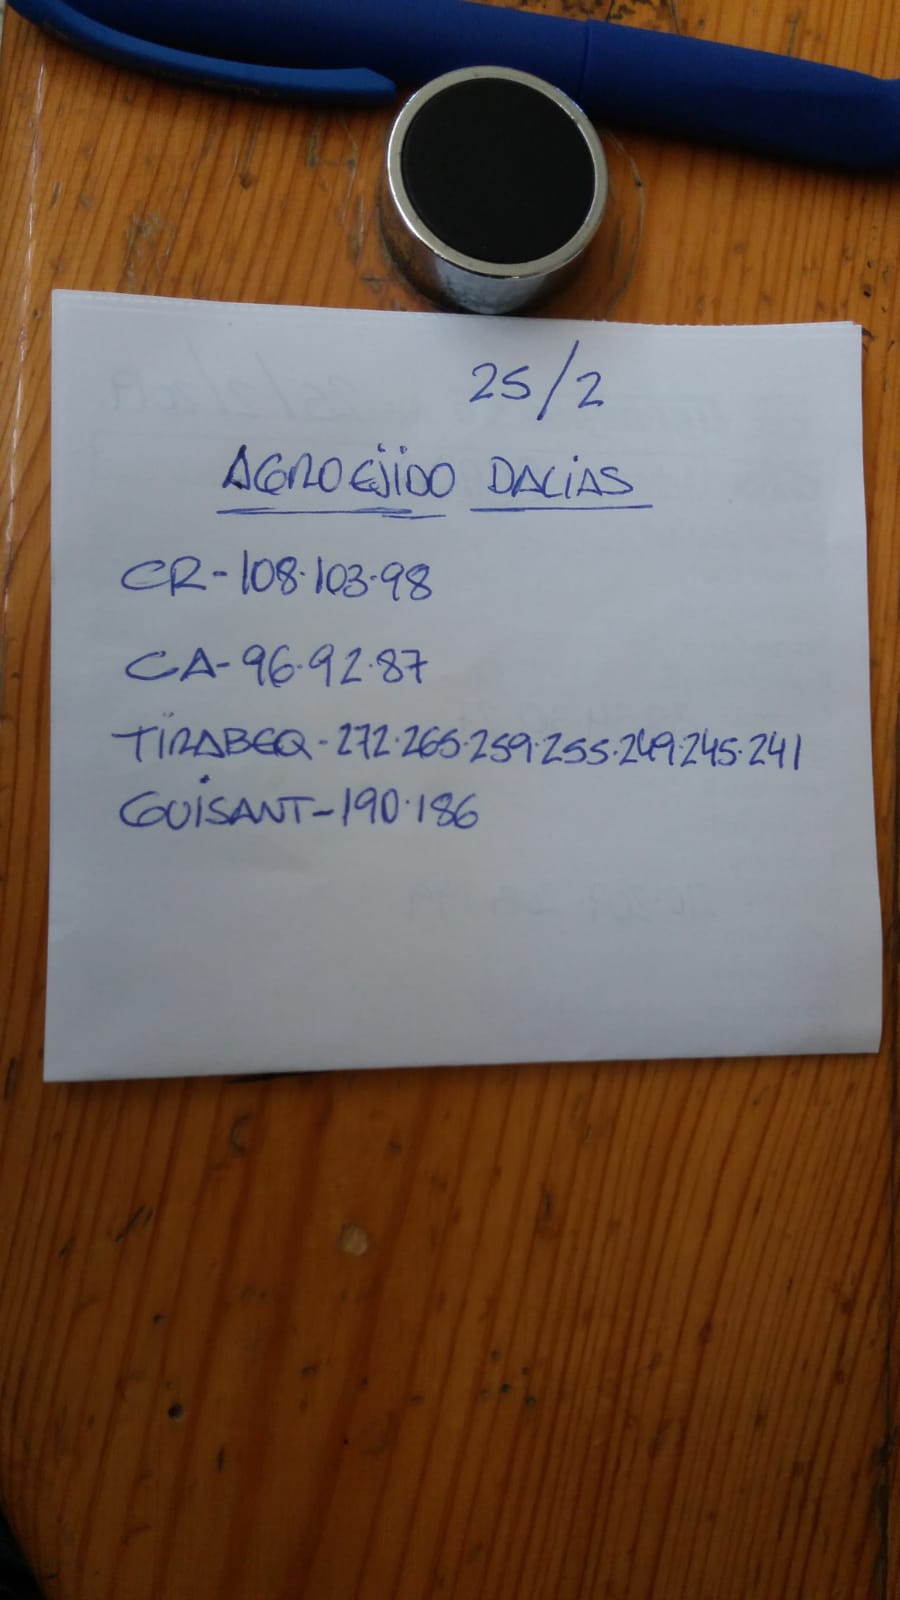 25/2
AGROEJIDO DALIAS
CR-108.103.98
CA-96.92.87
TIRABEQ-272.265.259.255.249.245.241
GUISANT-190.186